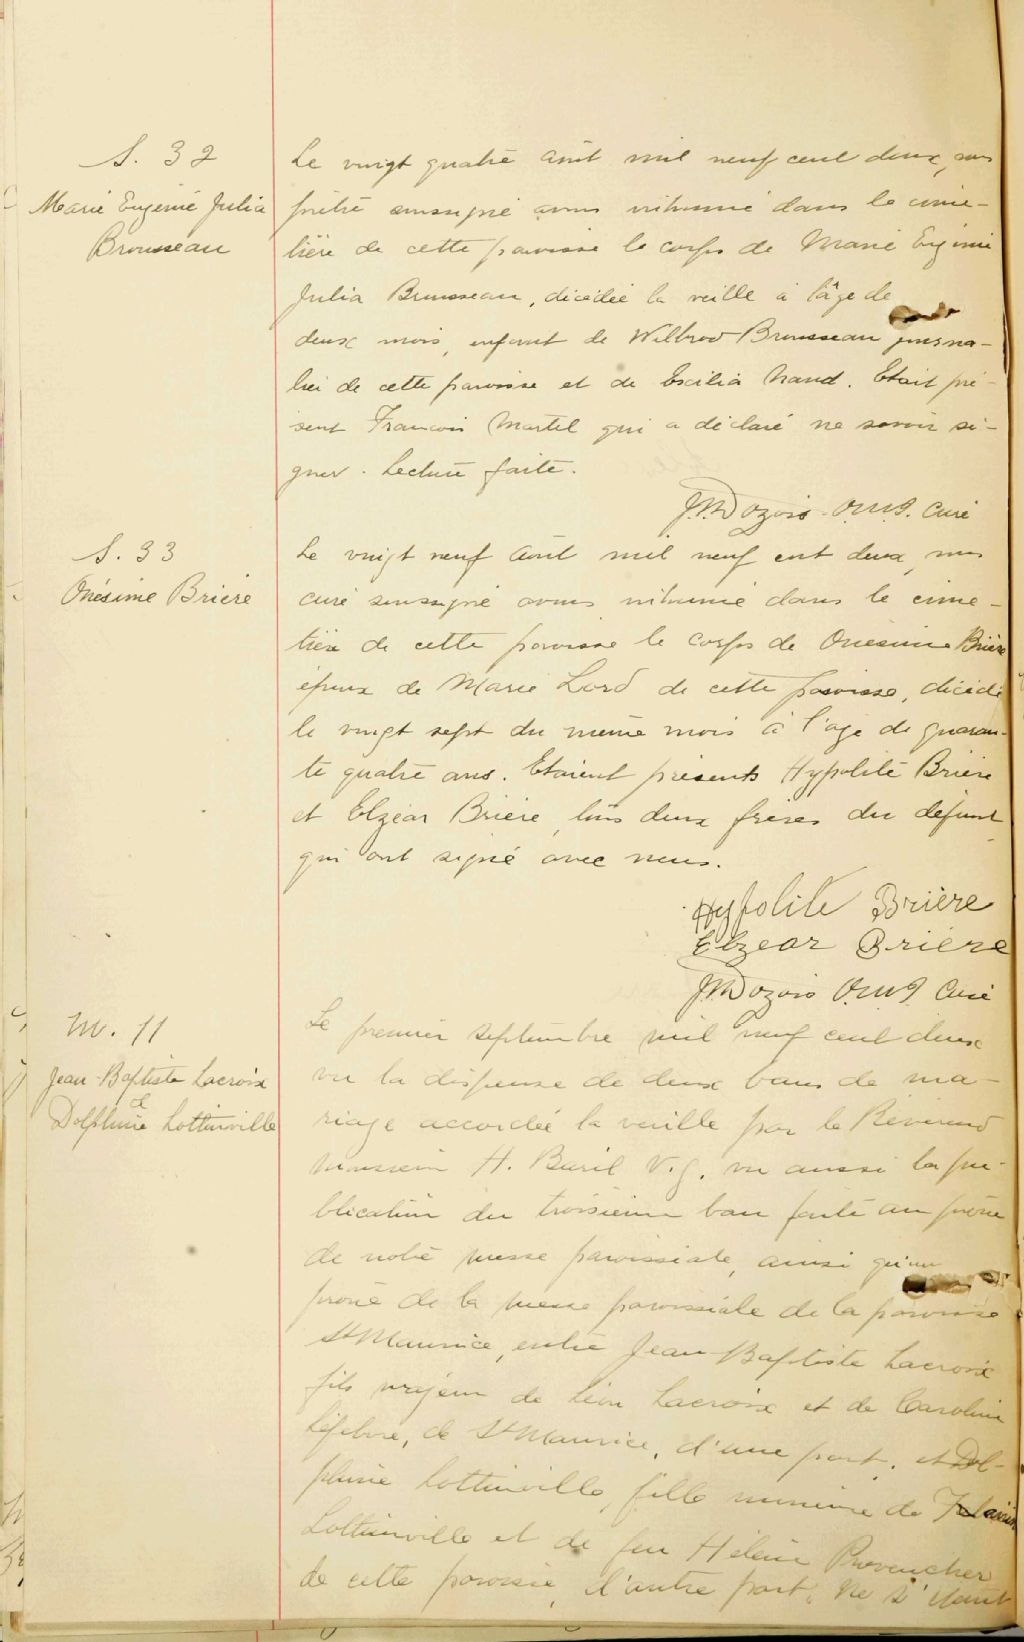 S. 32
Marie Eugénie Julia
Brousseau
Le vingt quatre août mil neuf cent deux, nous
prêtre soussigné avons inhumé dans le cime-
tière de cette paroisse le corps de Marie Eugénie
Julia Brousseau, décédée la veille à l'âge de
deux mois, enfant de Wilbrod Brousseau journa-
lier de cette paroisse et de Exilia Nand. Etait pré-
sent Francois Martel qui a déclaré ne savoir si-
gner. Lecture faite.
J.M Dozois O.M.I. Curé
S. 33
Onésime Brière
Le vingt neuf août mil neuf cent deux, nous
curé soussigné avons inhumé dans le cime-
tière de cette paroisse le corps de Onésime Brière
époux de Marie Lord de cette paroisse, décédé
le vingt sept du même mois à l'age de quaran-
te quatre ans. Etaient présents Hypolite Brière
et Elzéar Brière, tous deux frères du défunt
qui ont signé avec nous.
Hypolite Brière
Elzear Briere
J.M Dozois O.M.I Curé
M. 11
Jean-Baptiste Lacroix
et
Dolphine Lottinville
Le premier septembre mil neuf cent deux
vu la dispense de deux bans de ma-
riage accordée la veille par le Révérend
Monsieur H. Baril V.g. vu aussi la pu-
blication du troisième ban faite au prône
de notre messe paroissiale, ainsi qu'au
prône de la messe paroissiale de la paroisse
St Maurice, entre Jean-Baptiste Lacroix
fils majeur de Léon Lacroix et de Caroline
Lefebvre, de St Maurice, d'une part, et Dol-
phine Lottinville, fille mineure de
Lottinville et de feu Hélène Provencher
de cette paroisse, d'autre part, ne s'étant